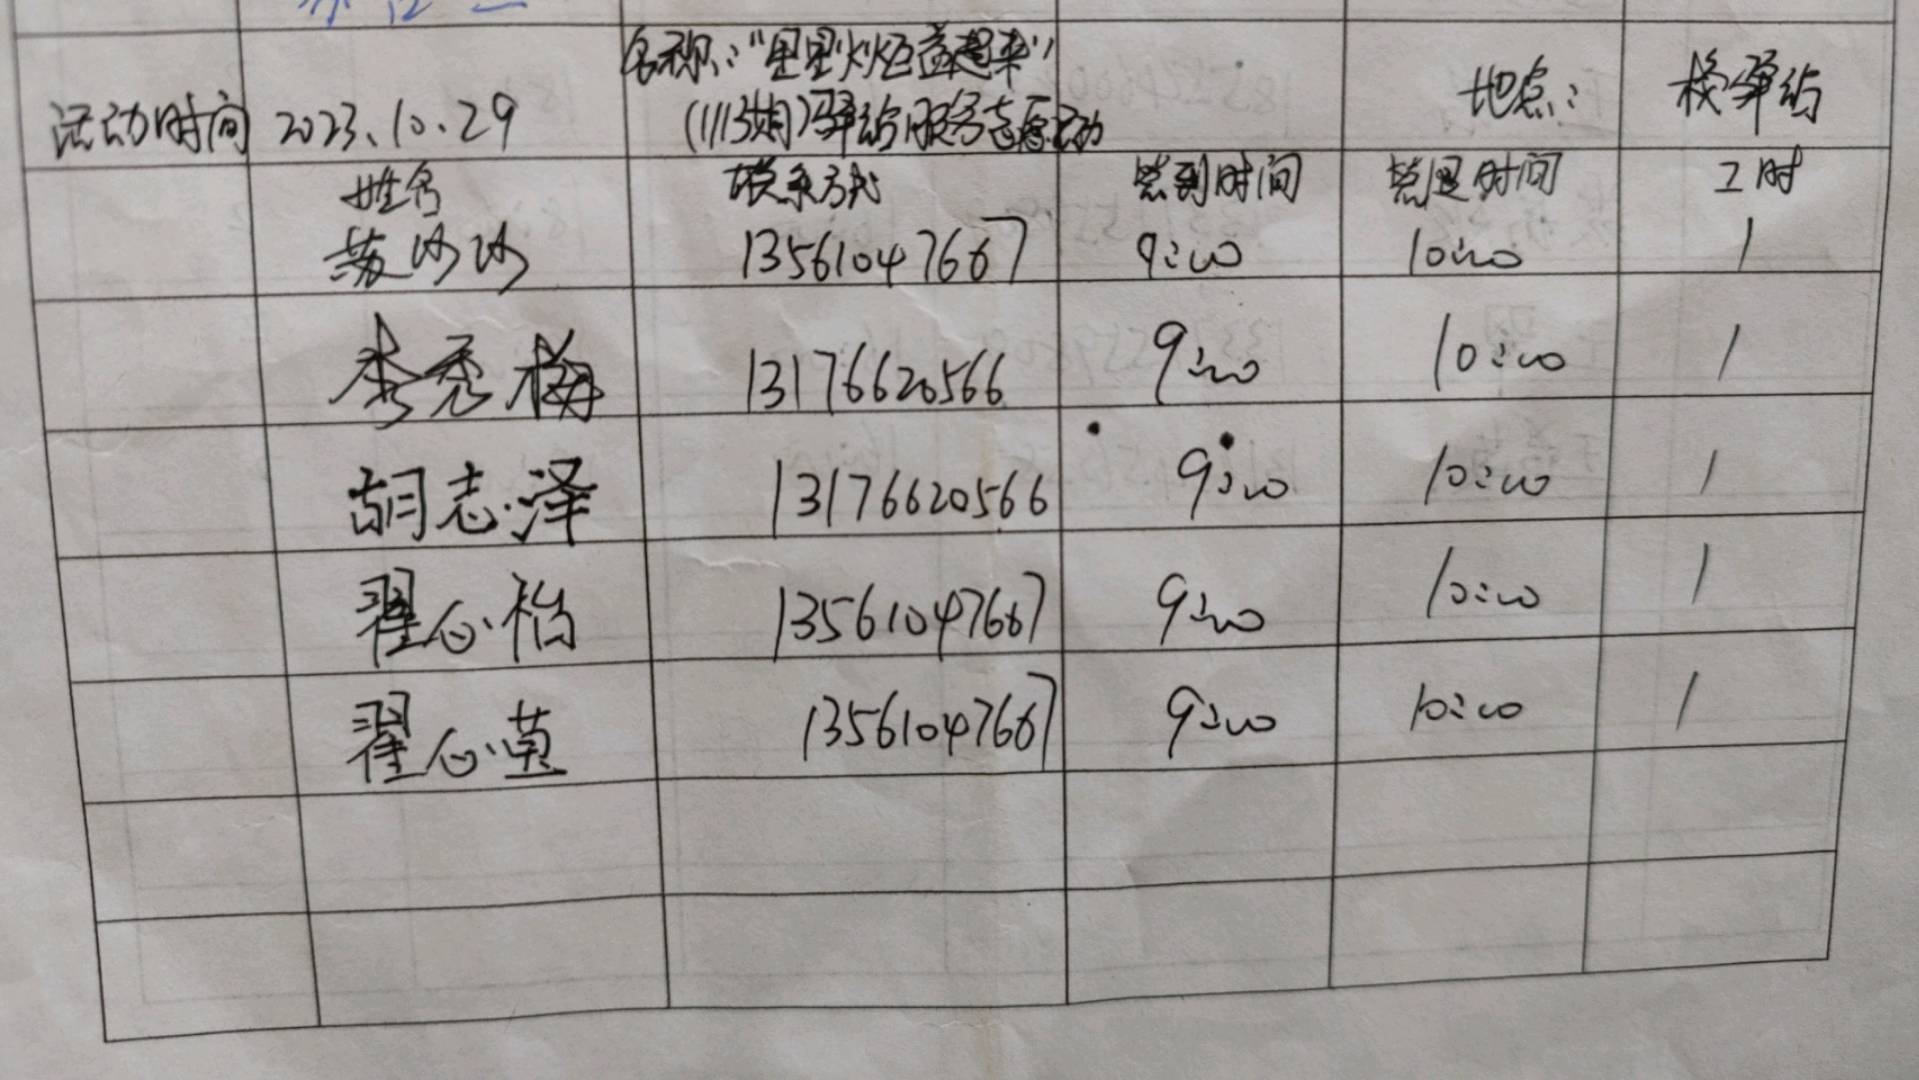 活动时间 2023.10.29 名称:"里里火炬益起来"
(1113期)驿站服务志愿活动 地点: 驿站
姓名 联系方式 签到时间 签退时间 工时
苏沙沙 13561047667 9:00 10:00 1
李秀梅 13176620566 9:00 10:00 1
胡志泽 13176620566 9:00 10:00 1
翟心怡 13561047667 9:00 10:00 1
翟心 13561047667 9:00 10:00 1